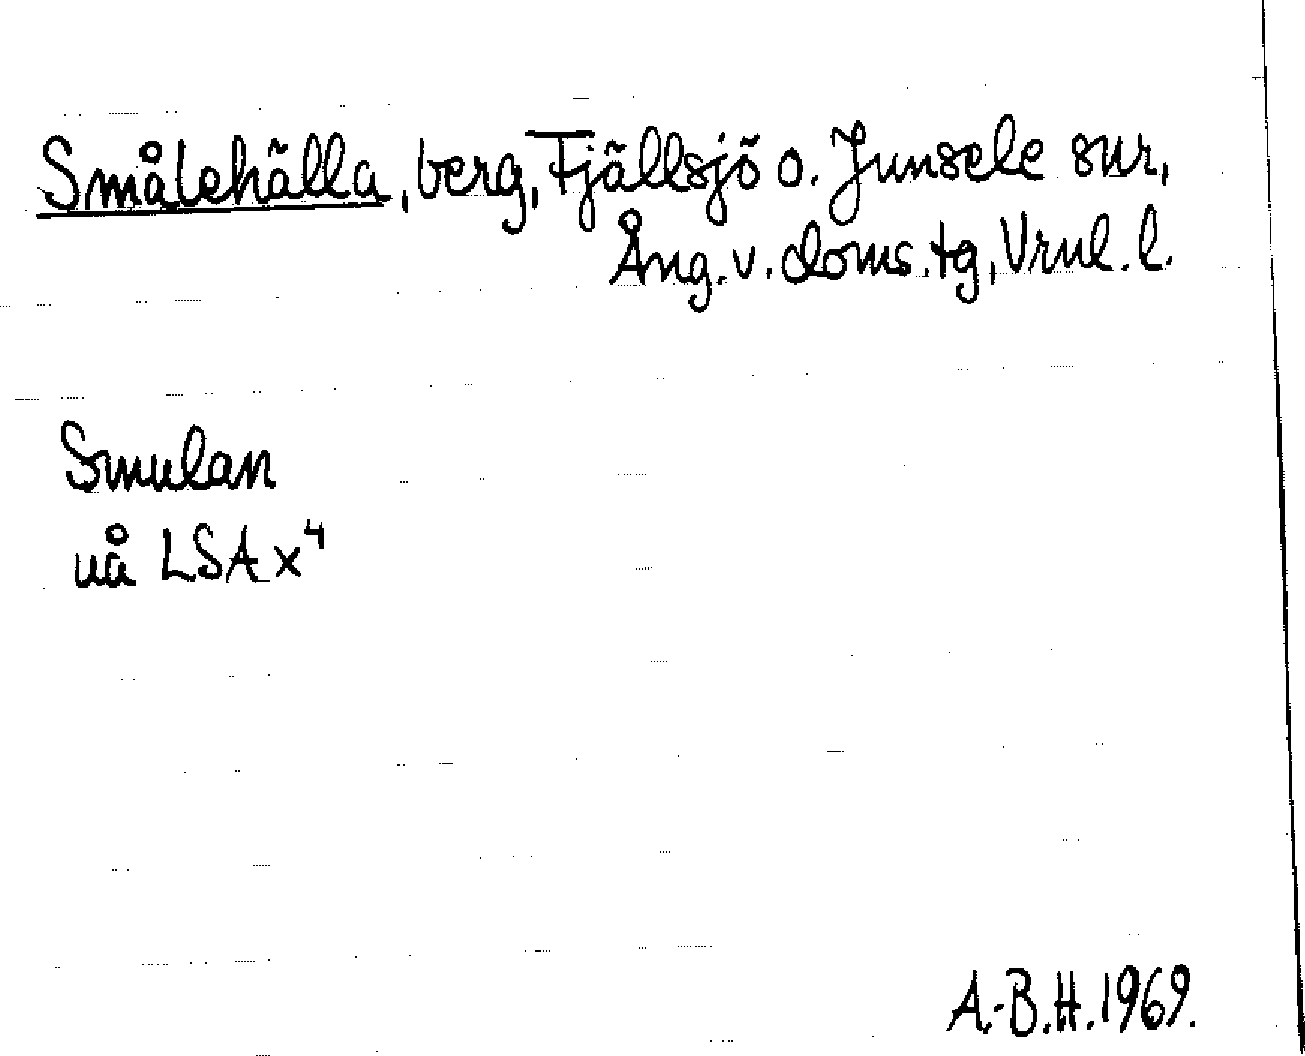 Smålehälla, berg, Fjällsjö o. Junsele snr,
Ång. v. doms. tg, Vrnl. l.
Smulan
uå LSA x⁴
A.-B.H. 1969.